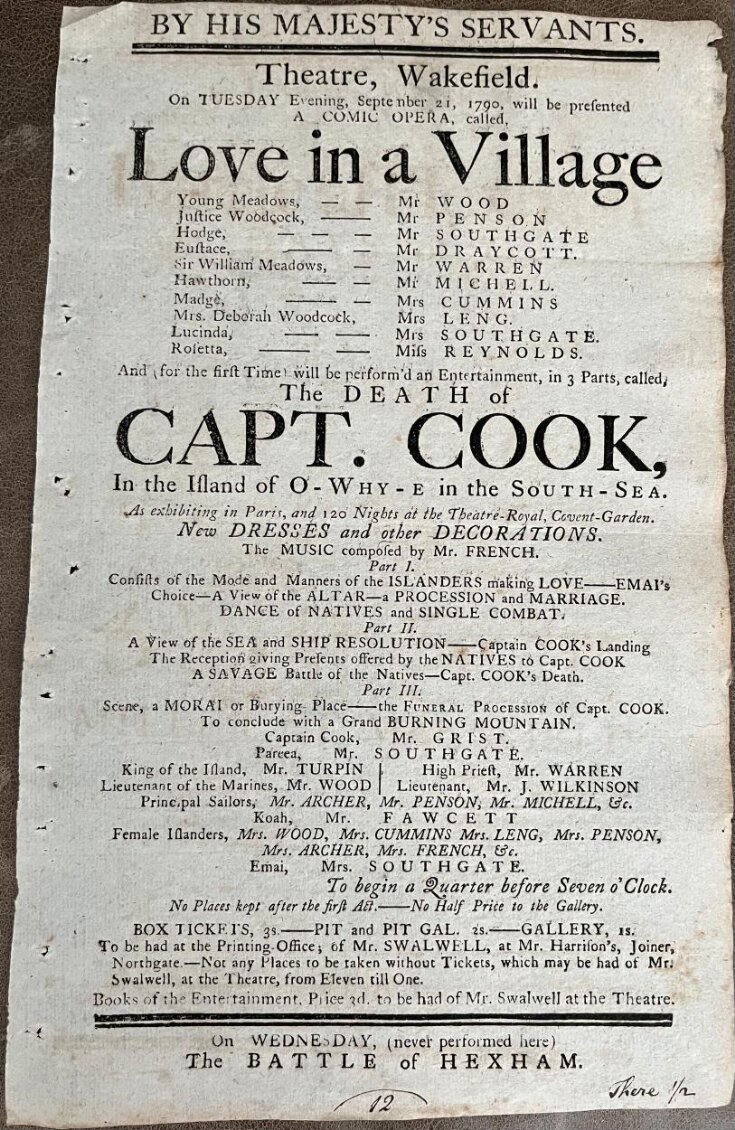 BY HIS MAJESTY'S SERVANTS.
Theatre, Wakefield.
On TUESDAY Evening, September 21, 1790, will be preſented
A COMIC OPERA, called,
Love in a Village
Young Meadows, — — Mr WOOD
Juſtice Woodcock, —— Mr PENSON
Hodge, — — — Mr SOUTHGATE
Euſtace, —— — Mr DRAYCOTT.
Sir William Meadows, — Mr WARREN
Hawthorn, —— — Mr MICHELL.
Madge, —— — Mrs CUMMINS
Mrs. Deborah Woodcock, Mrs LENG.
Lucinda, —— — Mrs SOUTHGATE.
Roſetta, —— — Miſs REYNOLDS.
And (for the firſt Time) will be perform'd an Entertainment, in 3 Parts, called,
The DEATH of
CAPT. COOK,
In the Iſland of O'-WHY-E in the SOUTH-SEA.
As exhibiting in Paris, and 120 Nights at the Theatre-Royal, Covent-Garden.
New DRESSES and other DECORATIONS.
The MUSIC compoſed by Mr. FRENCH.
Part I.
Conſiſts of the Mode and Manners of the ISLANDERS making LOVE——EMAI's
Choice—A View of the ALTAR—a PROCESSION and MARRIAGE.
DANCE of NATIVES and SINGLE COMBAT.
Part II.
A View of the SEA and SHIP RESOLUTION——Captain COOK's Landing
The Reception giving Preſents offered by the NATIVES to Capt. COOK
A SAVAGE Battle of the Natives—Capt. COOK's Death.
Part III.
Scene, a MORAI or Burying-Place——the FUNERAL PROCESSION of Capt. COOK.
To conclude with a Grand BURNING MOUNTAIN.
Captain Cook, Mr. GRIST.
Pareea, Mr. SOUTHGATE.
King of the Iſland, Mr. TURPIN | High Prieſt, Mr. WARREN
Lieutenant of the Marines, Mr. WOOD | Lieutenant, Mr. J. WILKINSON
Principal Sailors, Mr. ARCHER, Mr. PENSON, Mr. MICHELL, &c.
Koah, Mr. FAWCETT
Female Iſlanders, Mrs. WOOD, Mrs. CUMMINS Mrs. LENG, Mrs. PENSON,
Mrs. ARCHER, Mrs. FRENCH, &c.
Emai, Mrs. SOUTHGATE.
To begin a Quarter before Seven o'Clock.
No Places kept after the firſt Act.——No Half Price to the Gallery.
BOX TICKETS, 3s.——PIT and PIT GAL. 2s.——GALLERY, 1s.
To be had at the Printing-Office; of Mr. SWALWELL, at Mr. Harriſon's, Joiner,
Northgate.—Not any Places to be taken without Tickets, which may be had of Mr.
Swalwell, at the Theatre, from Eleven till One.
Books of the Entertainment, Price 3d. to be had of Mr. Swalwell at the Theatre.
On WEDNESDAY, (never performed here)
The BATTLE of HEXHAM.
There 1/2
12